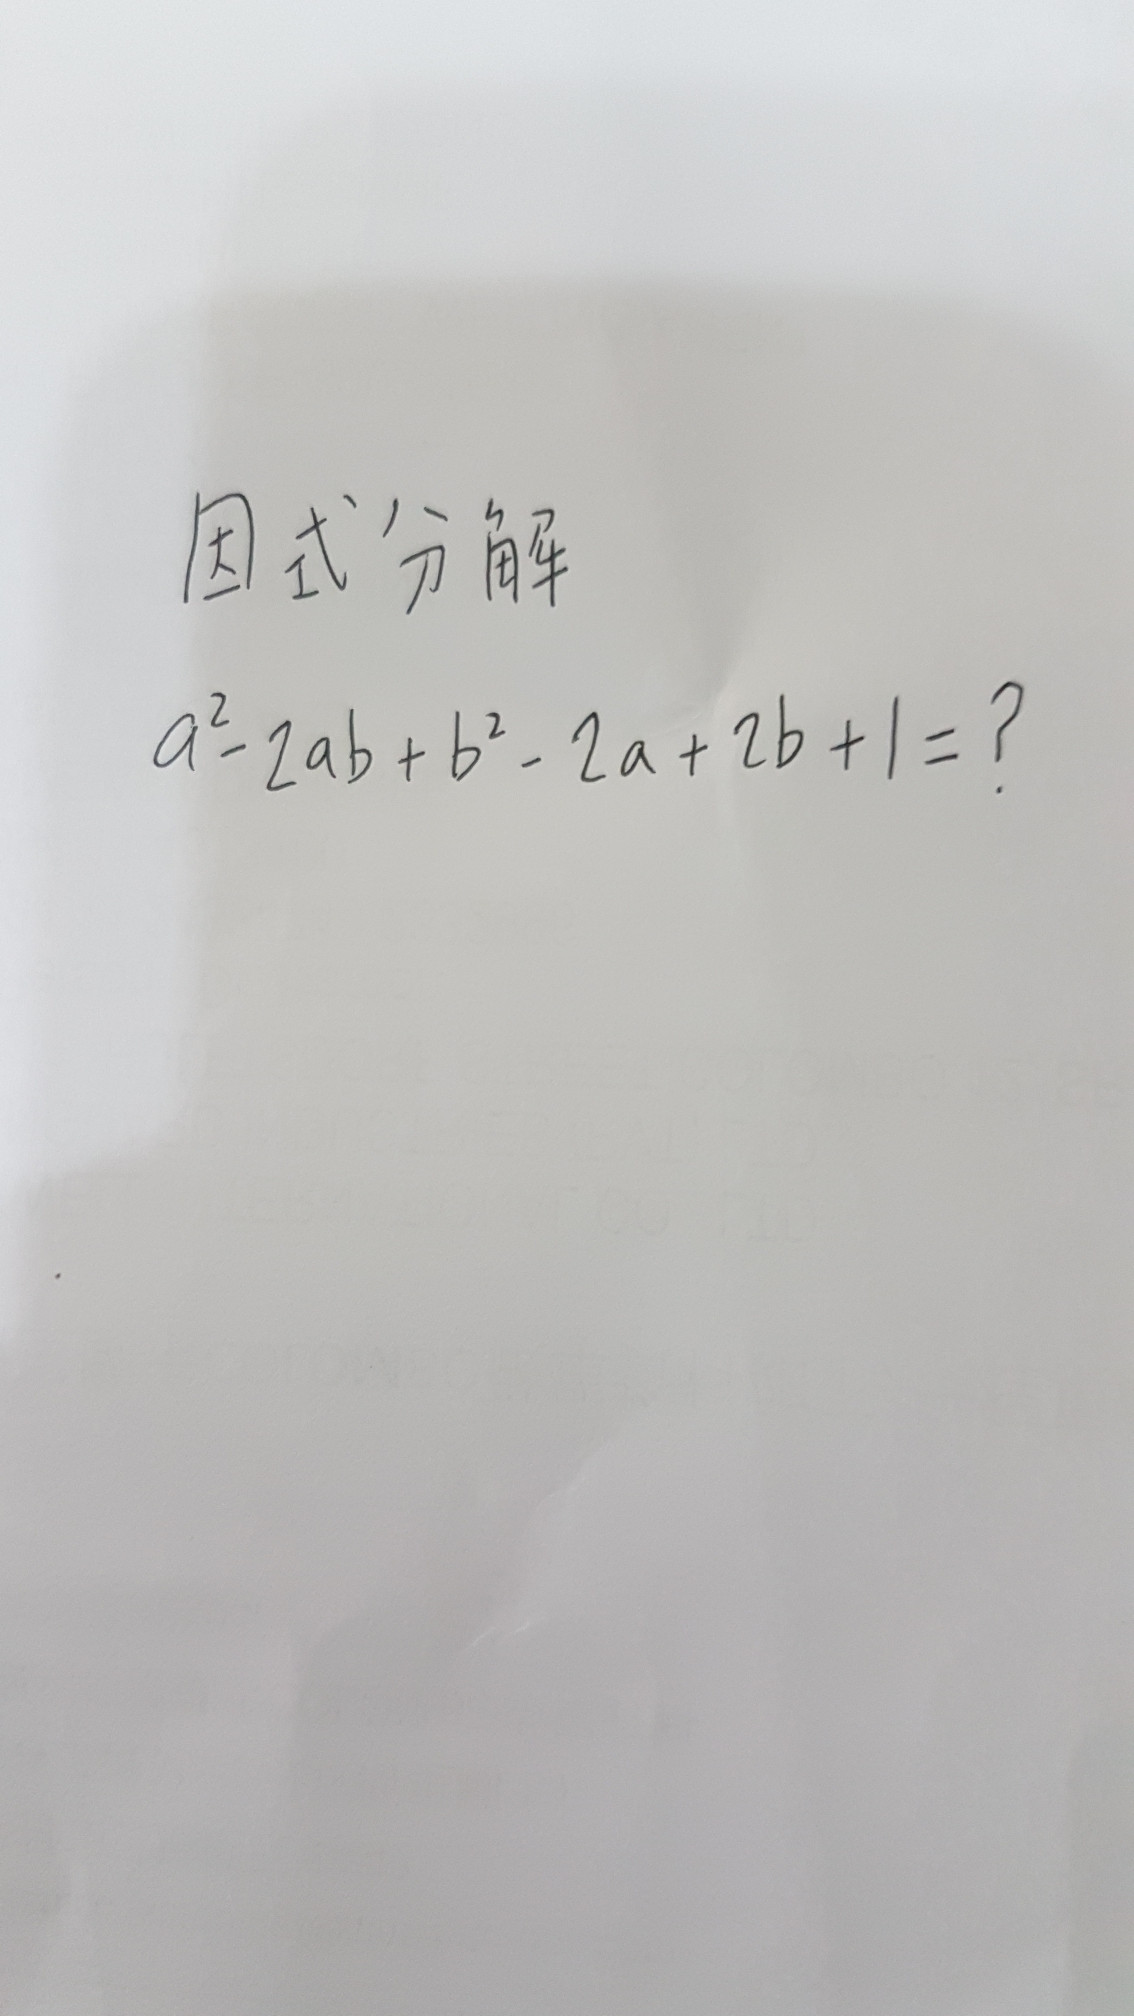 因式分解
a²-2ab+b²-2a+2b+1=?